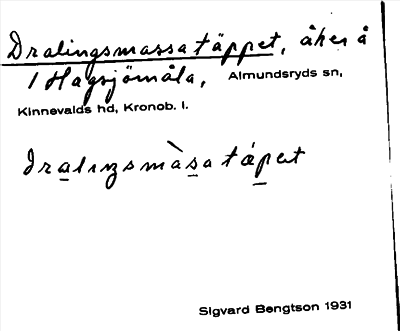 Dralingsmassatäppet, åker å
1 Hagsjömåla, Almundsryds sn,
Kinnevalds hd, Kronob. l.
dralıŋsmàsatápet
Sigvard Bengtson 1931